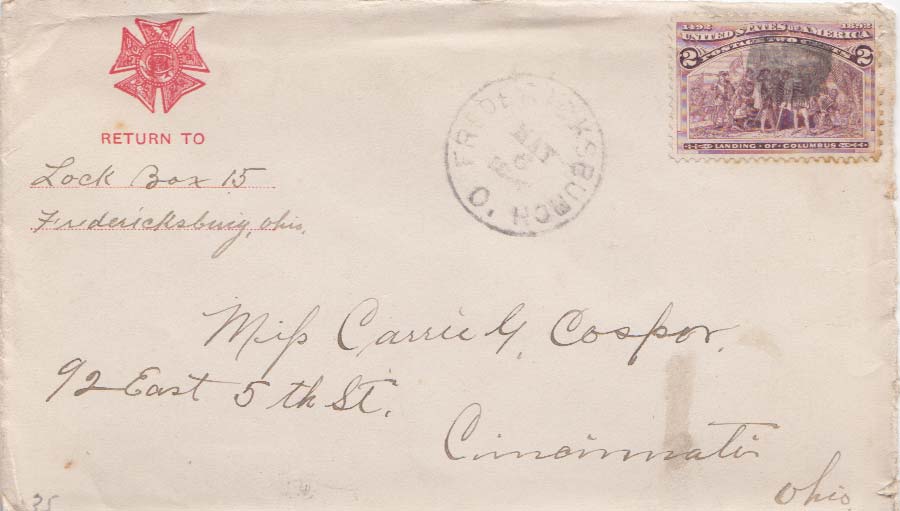 RETURN TO
Lock Box 15
Fredericksburg, Ohio.
FREDERICKSBURGH O.
MAY
6
1492 1892
UNITED STATES OF AMERICA
POSTAGE TWO CENTS
2 2
LANDING · OF · COLUMBUS
Miſs Carrie G. Cospor.
92 East 5 th St.
Cincinnati
Ohio
35